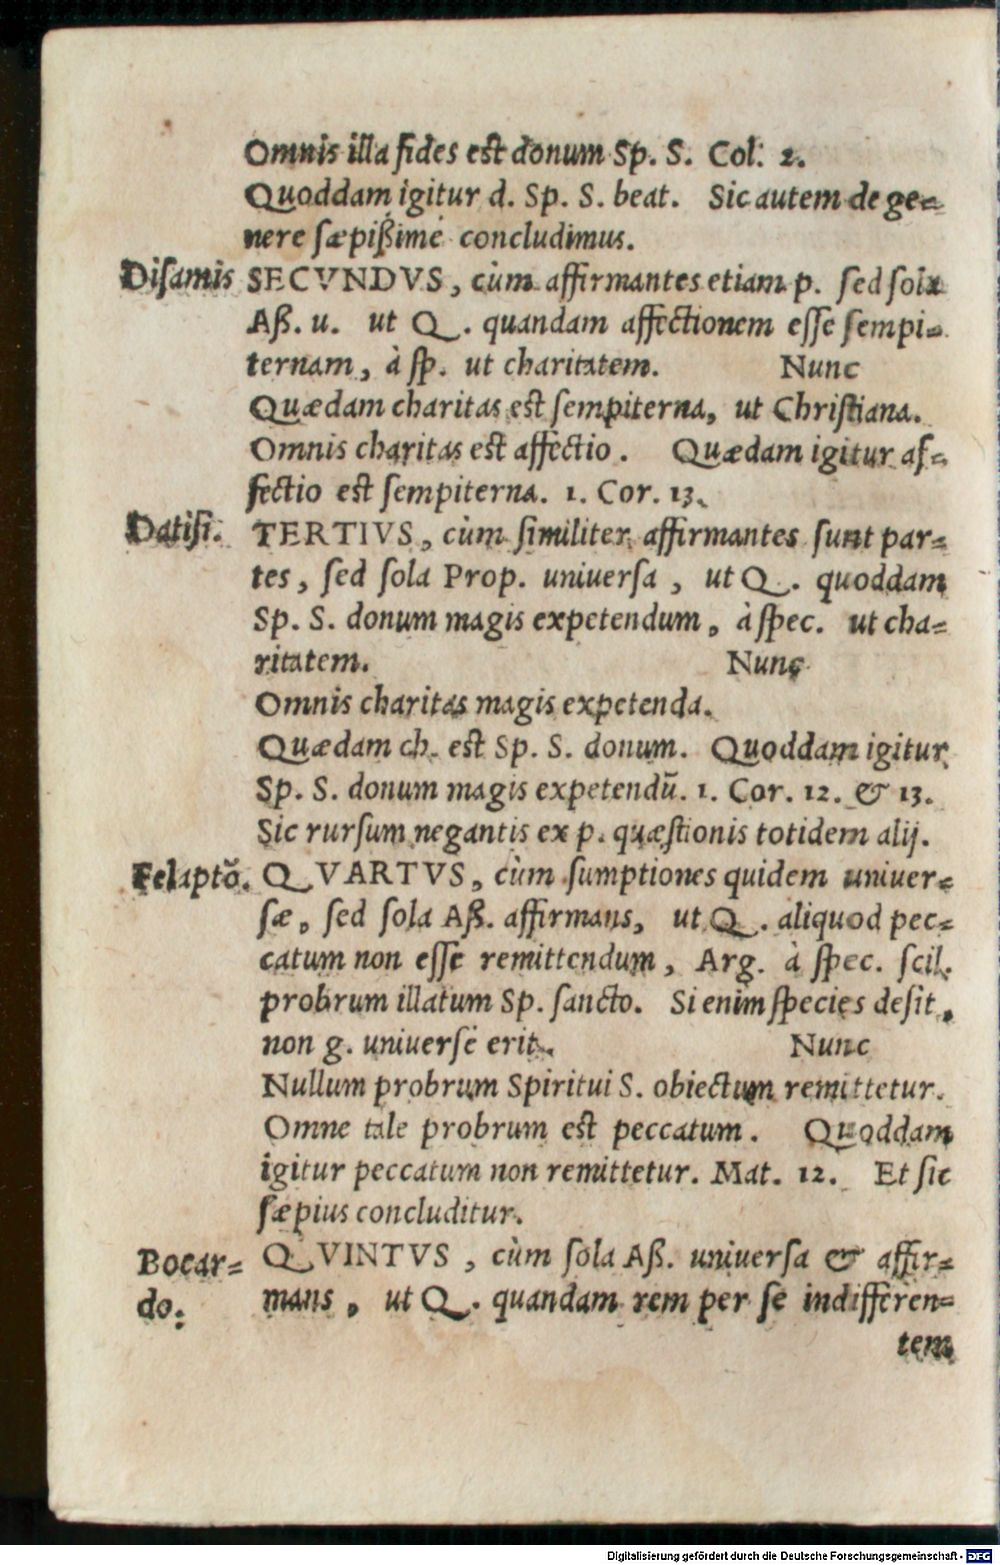 Omnis illa fides est donum Sp. S. Col. 2.
Quoddam igitur d. Sp. S. beat. Sic autem de ge=
nere sæpißimè concludimus.
Disamis SECVNDVS, cùm affirmantes etiam p. sed sola
Aß. u. ut Q. quandam affectionem esse sempi=
ternam, à sp. ut charitatem. Nunc
Quædam charitas est sempiterna, ut Christiana.
Omnis charitas est affectio. Quædam igitur af=
fectio est sempiterna. 1. Cor. 13.
Datisi. TERTIVS, cùm similiter affirmantes sunt par=
tes, sed sola Prop. uniuersa, ut Q. quoddam
Sp. S. donum magis expetendum, à spec. ut cha=
ritatem. Nunc
Omnis charitas magis expetenda.
Quædam ch. est Sp. S. donum. Quoddam igitur
Sp. S. donum magis expetendũ. 1. Cor. 12. & 13.
Sic rursum negantis ex p. quæstionis totidem alij.
Felaptõ. QVARTVS, cùm sumptiones quidem uniuer=
sæ, sed sola Aß. affirmans, ut Q. aliquod pec=
catum non esse remittendum, Arg. à spec. scil.
probrum illatum Sp. sancto. Si enim species desit,
non g. uniuersè erit. Nunc
Nullum probrum Spiritui S. obiectum remittetur.
Omne tale probrum est peccatum. Quoddam
igitur peccatum non remittetur. Mat. 12. Et sic
sæpius concluditur.
Bocar= QVINTVS, cùm sola Aß. uniuersa & affir=
do. mans, ut Q. quandam rem per se indifferen=
tem
Digitalisierung gefördert durch die Deutsche Forschungsgemeinschaft - DFG